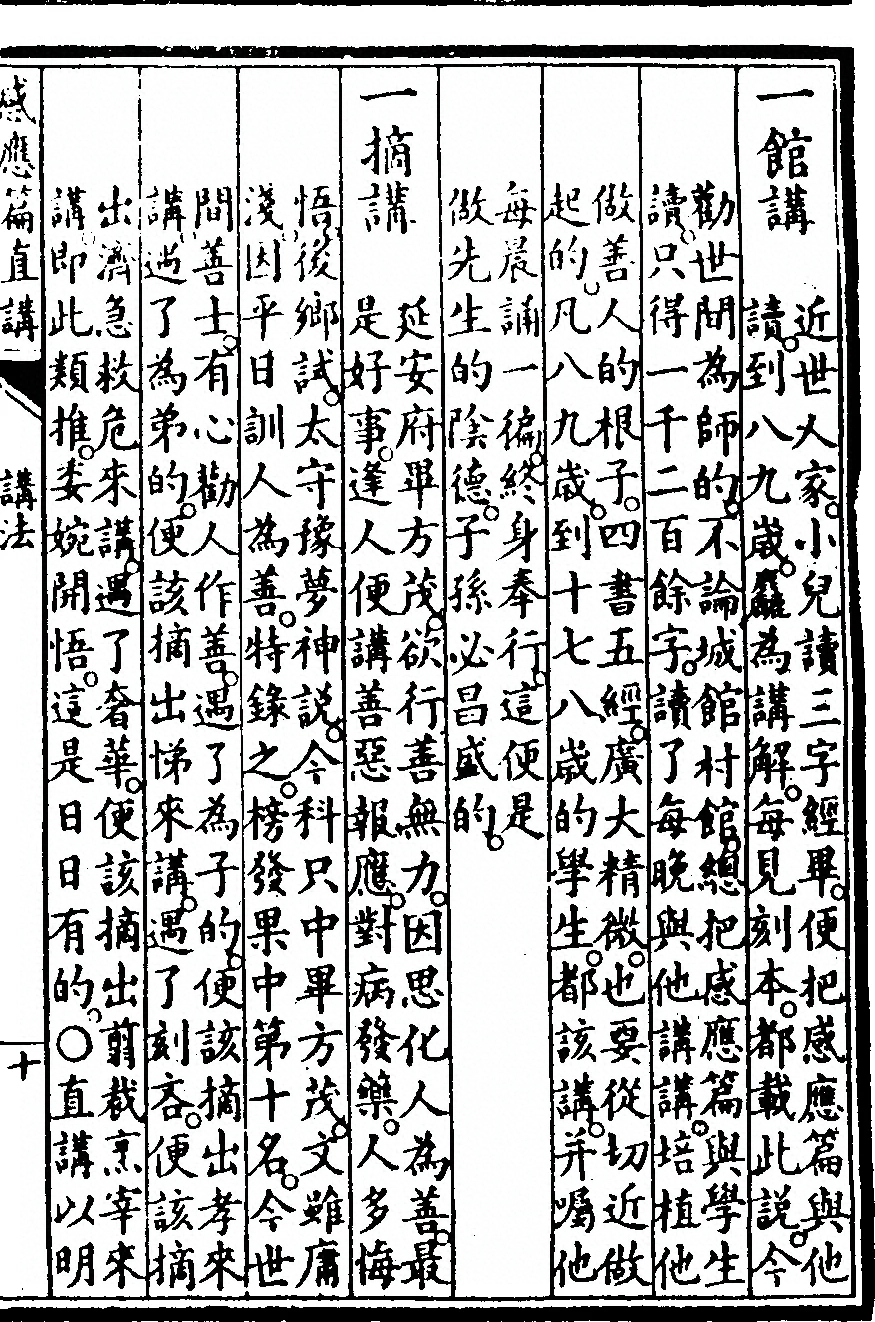 一館講
近世人家。小兒讀三字經畢。便把感應篇與他
讀。到八九歲。纔為講解。每見刻本。都載此說。今
勸世間為師的。不論城館村館。總把感應篇與學生
讀。只得一千二百餘字。讀了每晚與他講講。培植他
做善人的根子。四書五經。廣大精微。也要從切近做
起的。凡八九歲。到十七八歲的學生。都該講。并囑他
每晨誦一徧。終身奉行。這便是
做先生的陰德。子孫必昌盛的。
一摘講
延安府畢方茂。欲行善無力。因思化人為善。最
是好事。逢人便講善惡報應。對病發藥。人多悔
悟。後鄉試。太守豫夢神說。今科只中畢方茂。文雖庸
淺。因平日訓人為善。特錄之。榜發果中第十名。今世
間善士。有心勸人作善。遇了為子的。便該摘出孝來
講。遇了為弟的。便該摘出悌來講。遇了刻吝。便該摘
出濟急救危來講。遇了奢華。便該摘出剪裁烹宰來
講。即此類推。委婉開悟。這是日日有的。○直講以明
感應篇直講
講法
十